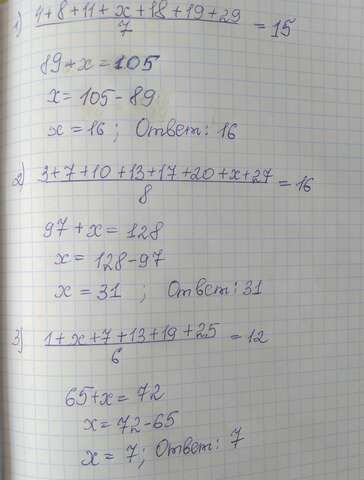 1) 4+8+11+x+18+19+29 / 7 = 15
89+x=105
x=105-89
x=16; Ответ: 16
2) 3+7+10+13+17+20+x+27 / 8 = 16
97+x=128
x=128-97
x=31 ; Ответ: 31
3) 1+x+7+13+19+25 / 6 = 12
65+x=72
x=72-65
x=7; Ответ: 7